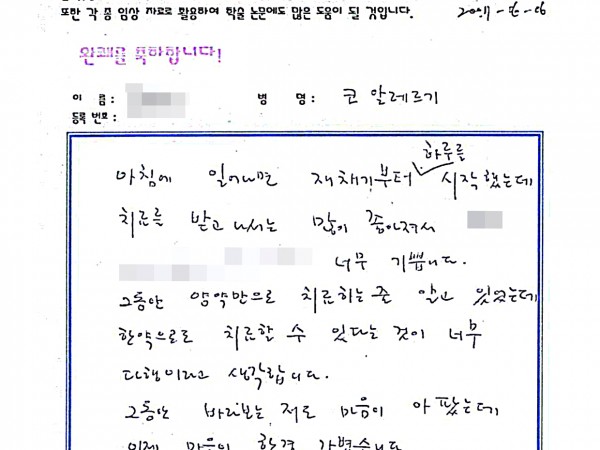 또한 각 종 임상 자료로 활용하여 학술 논문에도 많은 도움이 될 것입니다.
완쾌를 축하합니다!
이 름 : 병 명 : 코 알레르기
등록 번호 :
하루를
아침에 일어나면 재채기부터 시작했는데
치료를 받고 나서는 많이 좋아져서
너무 기쁩니다.
그동안 양약만으로 치료하는줄 알고 있었는데
한약으로도 치료할 수 있다는 것이 너무
다행이라고 생각합니다.
그동안 바라보는 저도 마음이 아팠는데
이제 마음이 한결 가볍습니다